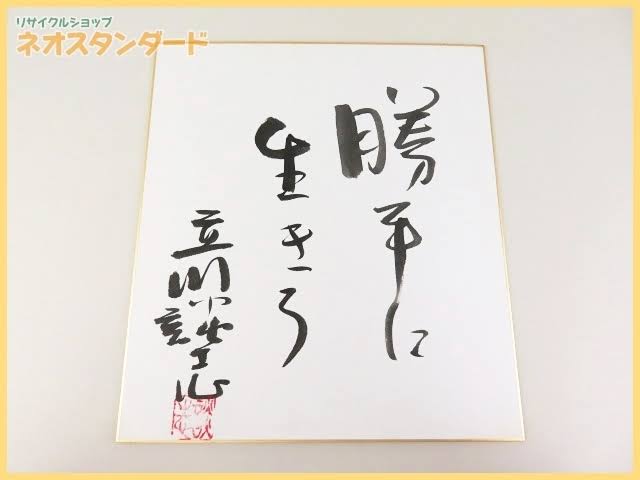 リサイクルショップ
ネオスタンダード
勝手に
生きろ
立川談志